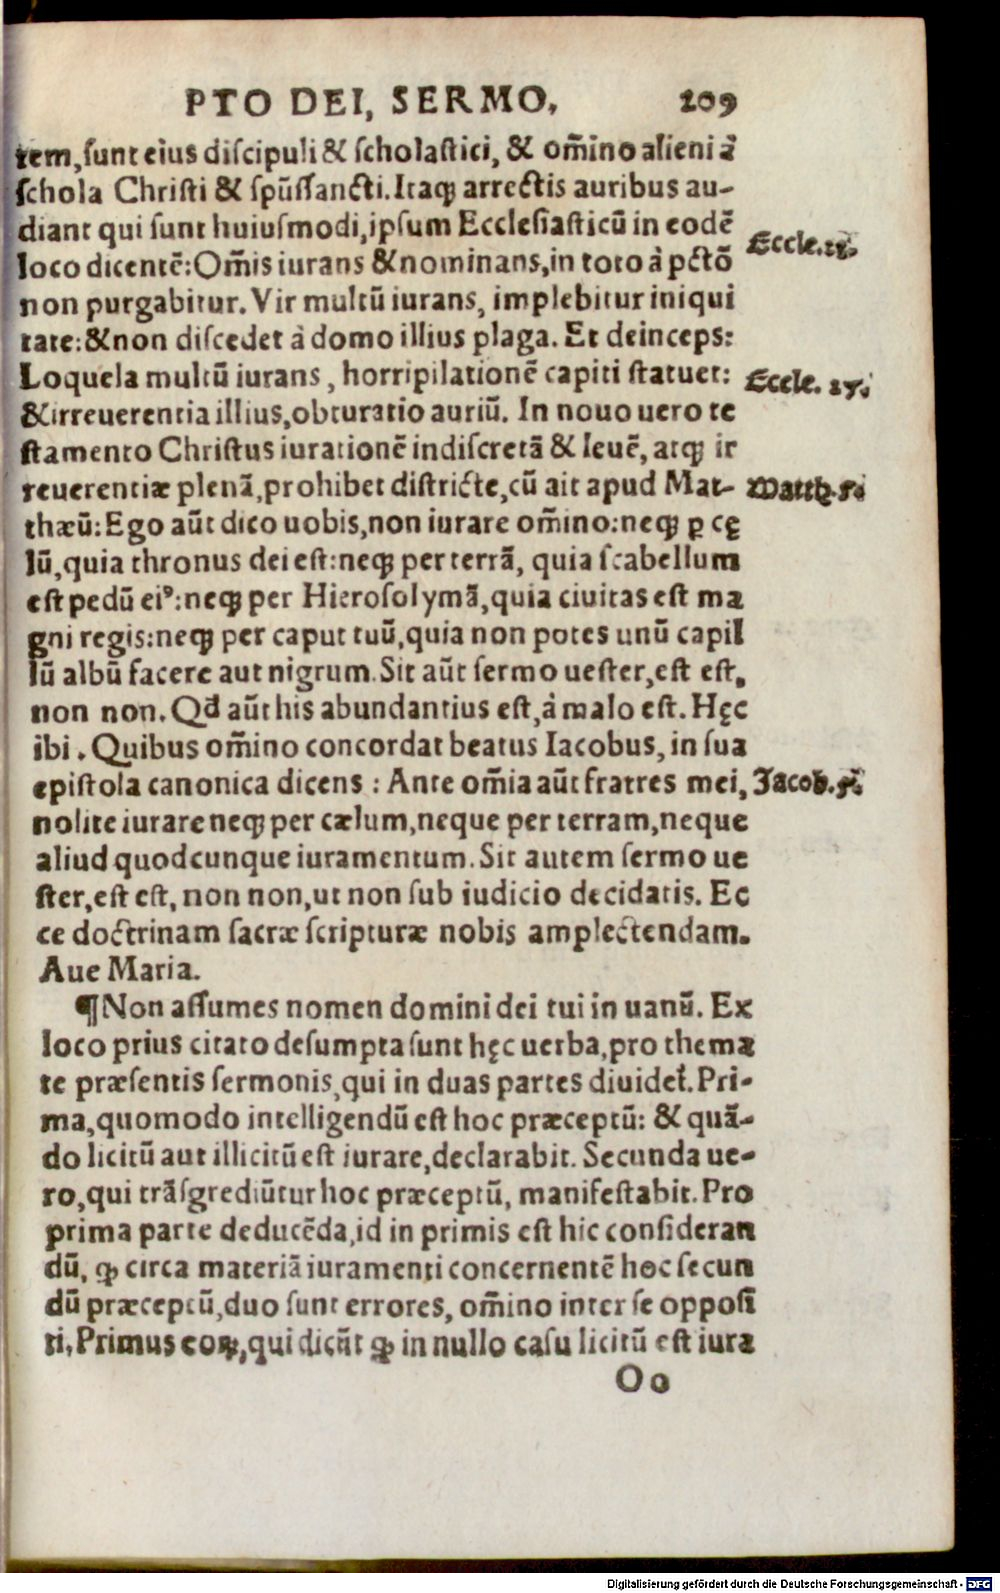 PTO DEI, SERMO, 209
tem, sunt eius discipuli & scholastici, & om̃ino alieni à
schola Christi & spũssancti. Itaq; arrectis auribus au-
diant qui sunt huiusmodi, ipsum Ecclesiasticũ in eodẽ
Eccle.23.
loco dicentẽ: Om̃is iurans & nominans, in toto à pctõ
non purgabitur. Vir multũ iurans, implebitur iniqui
tate: & non discedet à domo illius plaga. Et deinceps:
Loquela multũ iurans, horripilationẽ capiti statuet:
Eccle. 27.
& irreuerentia illius, obturatio auriũ. In nouo uero te
stamento Christus iurationẽ indiscretã & leuẽ, atq; ir
reuerentiæ plenã, prohibet districte, cũ ait apud Mat-
Matth. 5.
thæũ: Ego aũt dico uobis, non iurare om̃ino: neq; ꝑ cę
lũ, quia thronus dei est: neq; per terrã, quia scabellum
est pedũ eiꝰ: neq; per Hierosolymã, quia ciuitas est ma
gni regis: neq; per caput tuũ, quia non potes unũ capil
lũ albũ facere aut nigrum. Sit aũt sermo uester, est est,
non non. Qd̃ aũt his abundantius est, à malo est. Hęc
ibi. Quibus om̃ino concordat beatus Iacobus, in sua
epistola canonica dicens: Ante om̃ia aũt fratres mei,
Jacob. 5.
nolite iurare neq; per cælum, neque per terram, neque
aliud quodcunque iuramentum. Sit autem sermo ue
ster, est est, non non, ut non sub iudicio decidatis. Ec
ce doctrinam sacræ scripturæ nobis amplectendam.
Aue Maria.
¶Non assumes nomen domini dei tui in uanũ. Ex
loco prius citato desumpta sunt hęc uerba, pro thema
te præsentis sermonis, qui in duas partes diuidet̃. Pri-
ma, quomodo intelligendũ est hoc præceptũ: & quã-
do licitũ aut illicitũ est iurare, declarabit. Secunda ue-
ro, qui trãsgrediũtur hoc præceptũ, manifestabit. Pro
prima parte deducẽda, id in primis est hic consideran
dũ, ꝙ circa materiã iuramenti concernentẽ hoc secun
dũ præceptũ, duo sunt errores, om̃ino inter se opposi
ti. Primus eoꝝ, qui dicũt ꝙ in nullo casu licitũ est iura
Oo
Digitalisierung gefördert durch die Deutsche Forschungsgemeinschaft - DFG